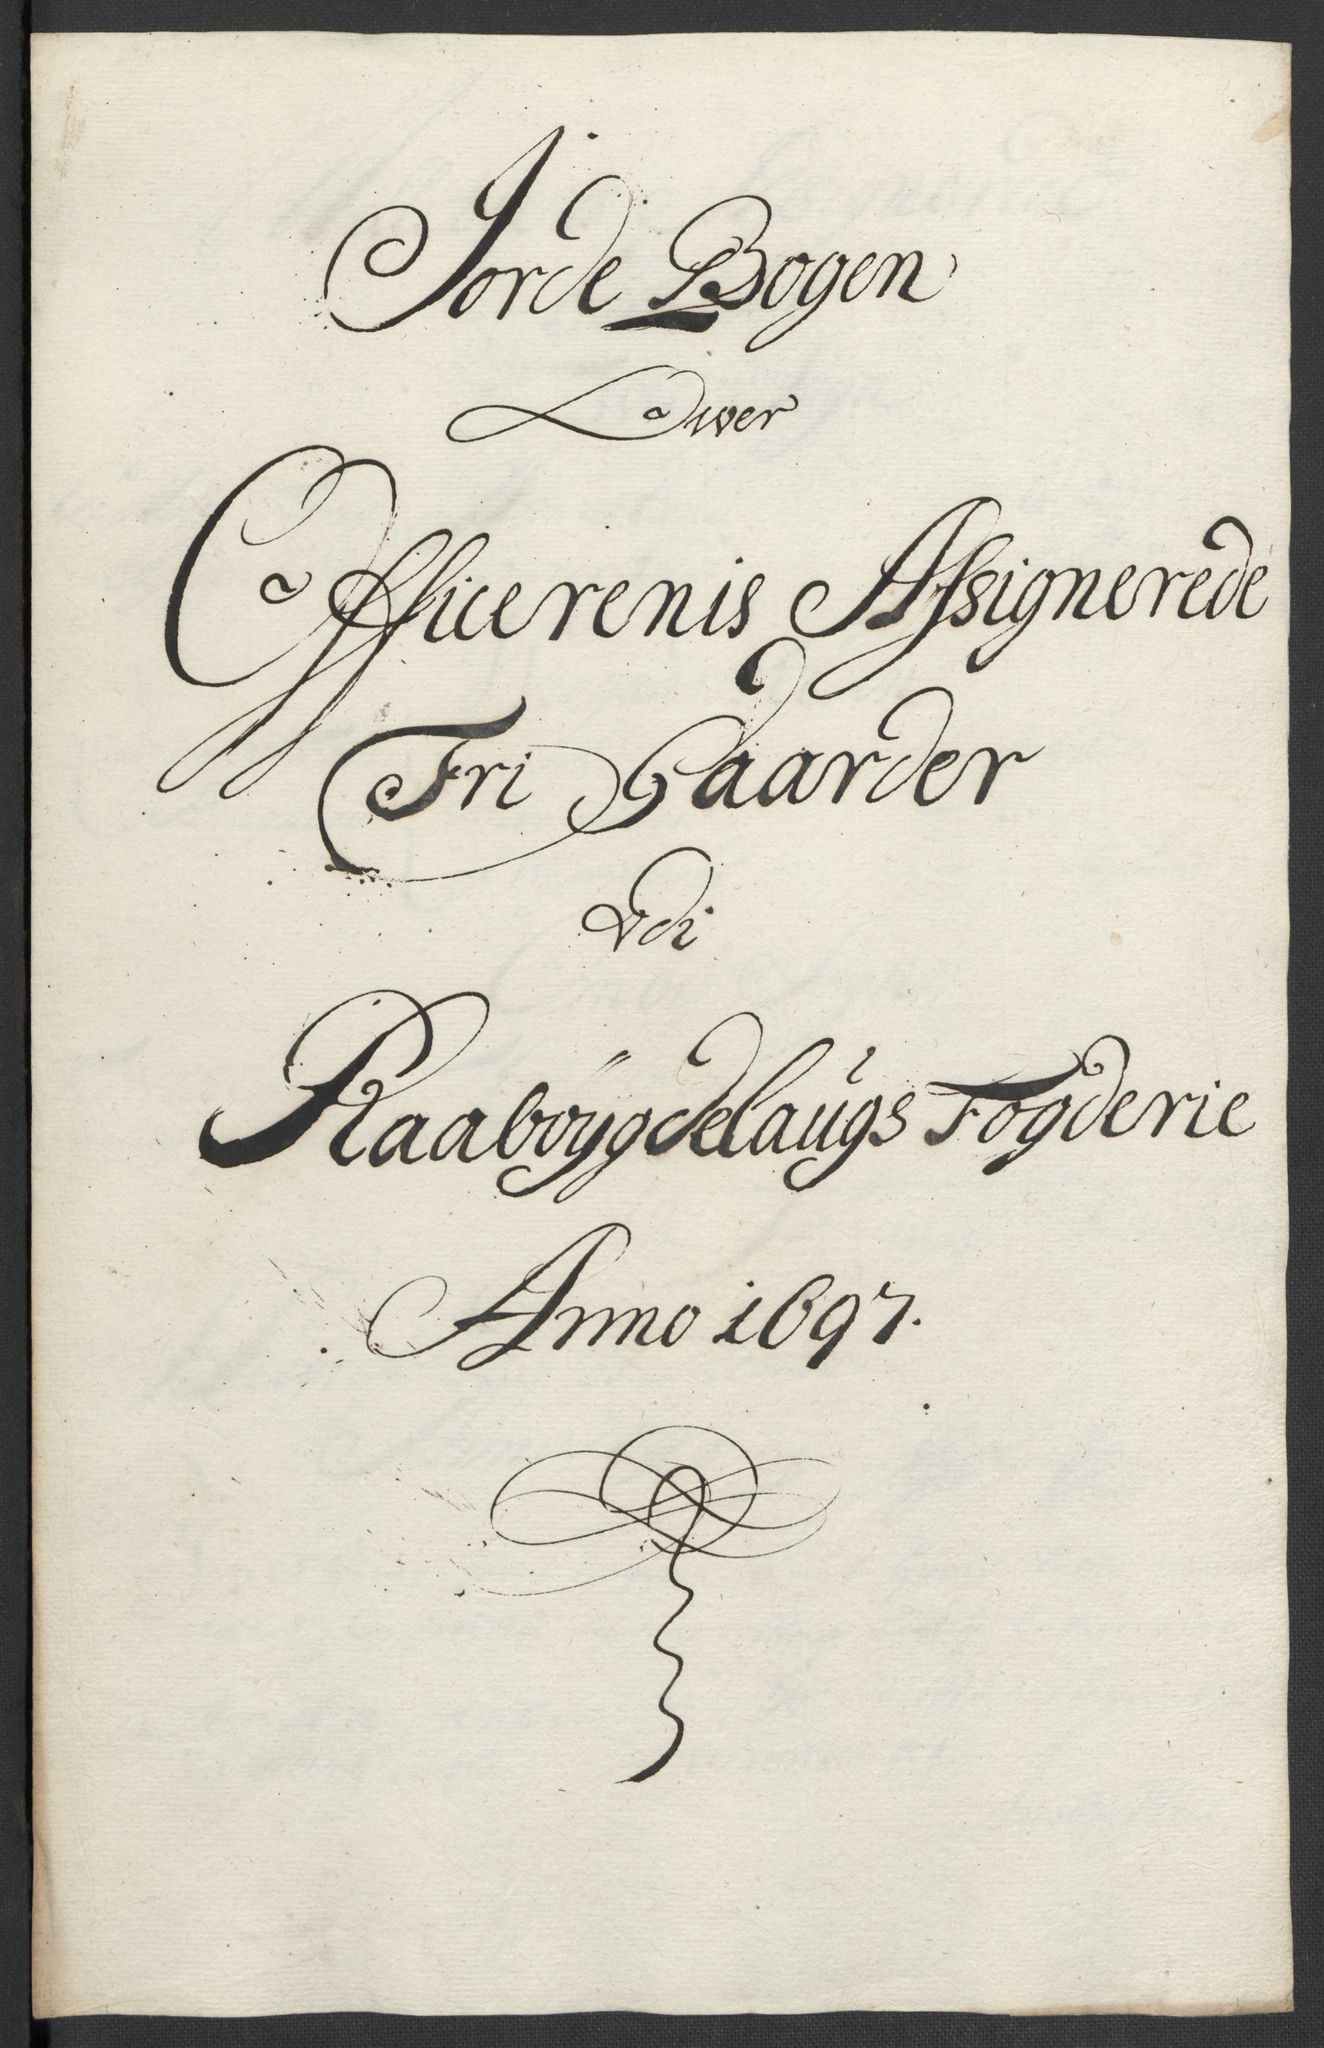 Jorde Bogen
Ower
Officerenis Assignerede
Fri Gaarder
Udi
Raaböygdelaugs Fogderie
Anno 1697.